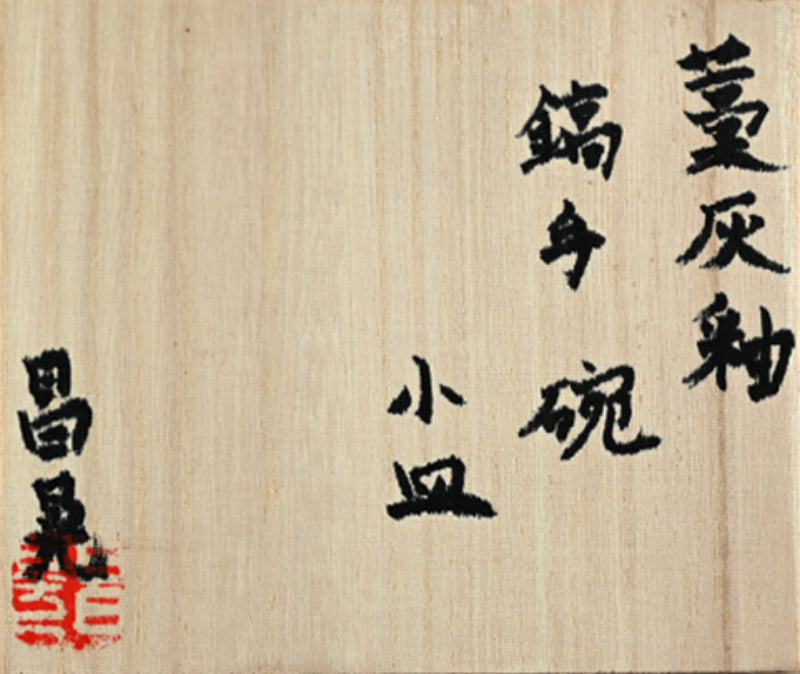 藁灰釉
鎬手碗
小皿
昌晃